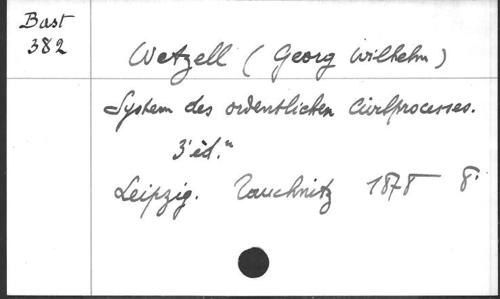 Bast
382
Wetzell (Georg Wilhelm)
System des ordentlichen Civilprocesses.
3' éd."
Leipzig. Tauchnitz 1878 8°